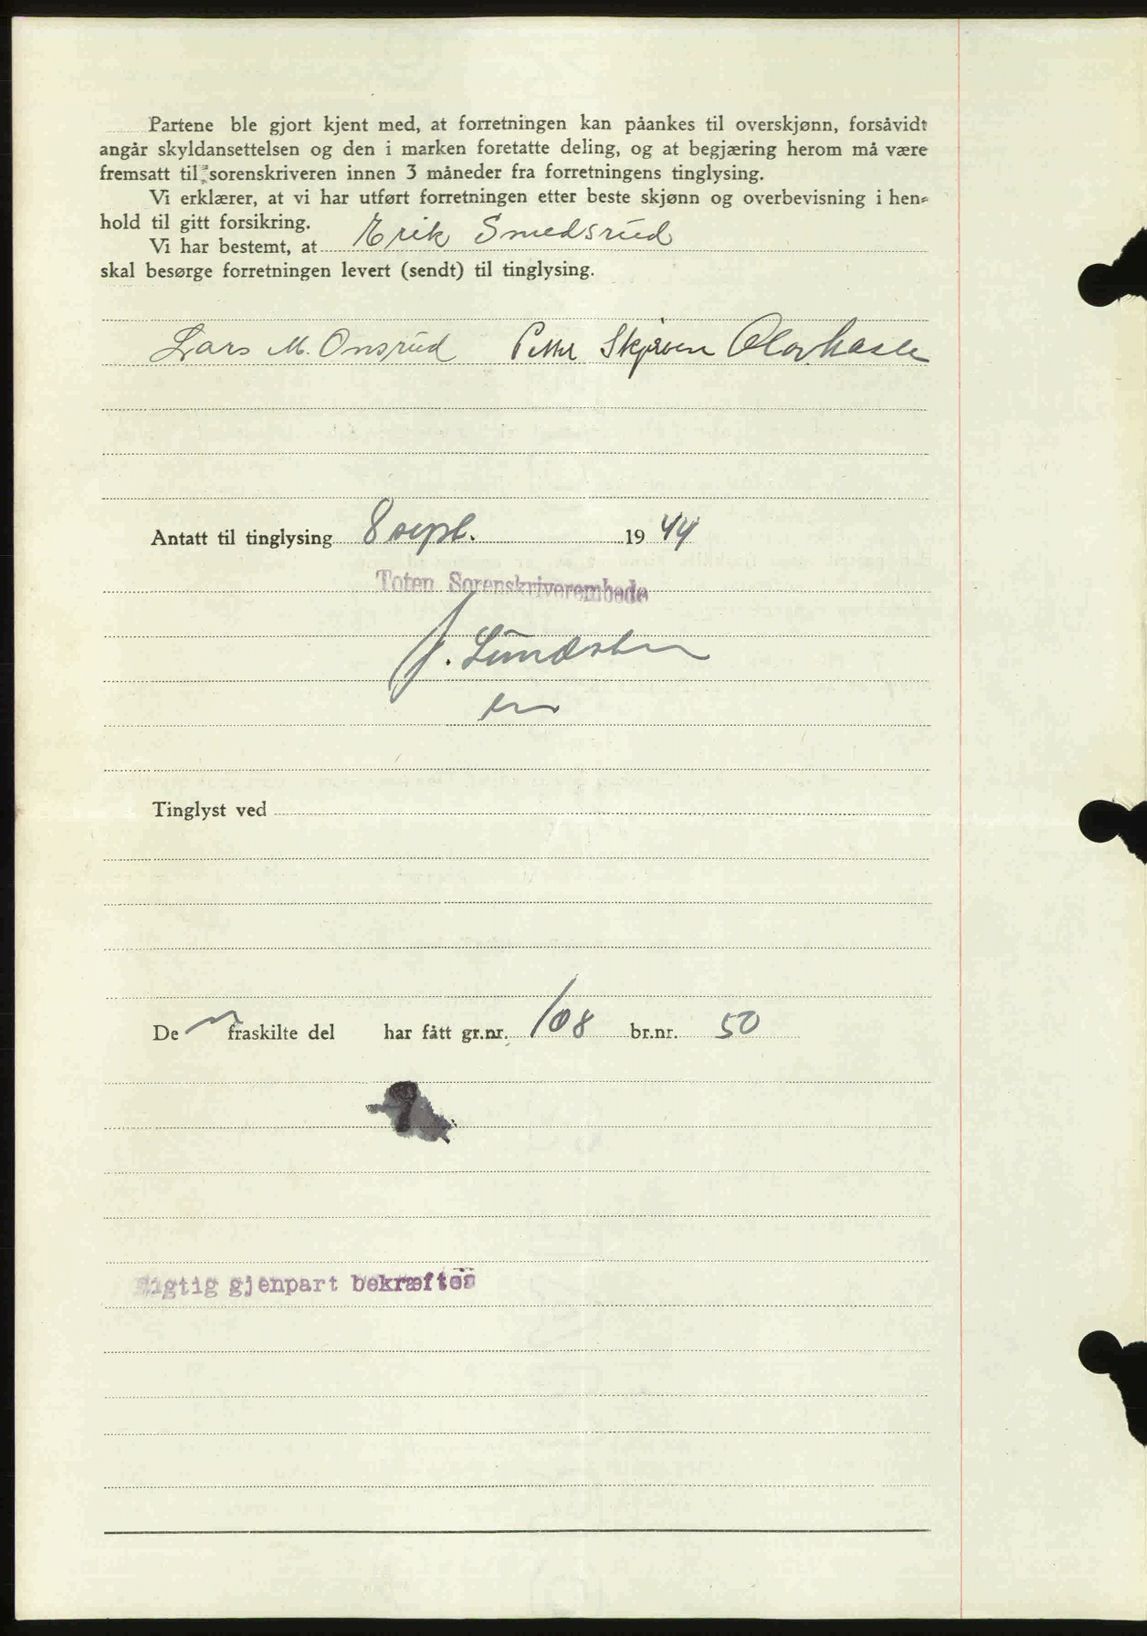 Partene ble gjort kjent med, at forretningen kan påankes til overskjønn, forsåvidt
angår skyldansettelsen og den i marken foretatte deling, og at begjæring herom må være
fremsatt til sorenskriveren innen 3 måneder fra forretningens tinglysing.
Vi erklærer, at vi har utført forretningen etter beste skjønn og overbevisning i hen-
hold til gitt forsikring.
Vi har bestemt, at Erik Smedsrud
skal besørge forretningen levert (sendt) til tinglysing.
Lars M. Onsrud Petter Skjøven Olav Kasle
Antatt til tinglysing 8 sept. 1944
Toten Sorenskriverembede
J. Lundsten
Tinglyst ved
De n fraskilte del har fått gr.nr. 108 br.nr. 50
Rigtig gjenpart bekræftes